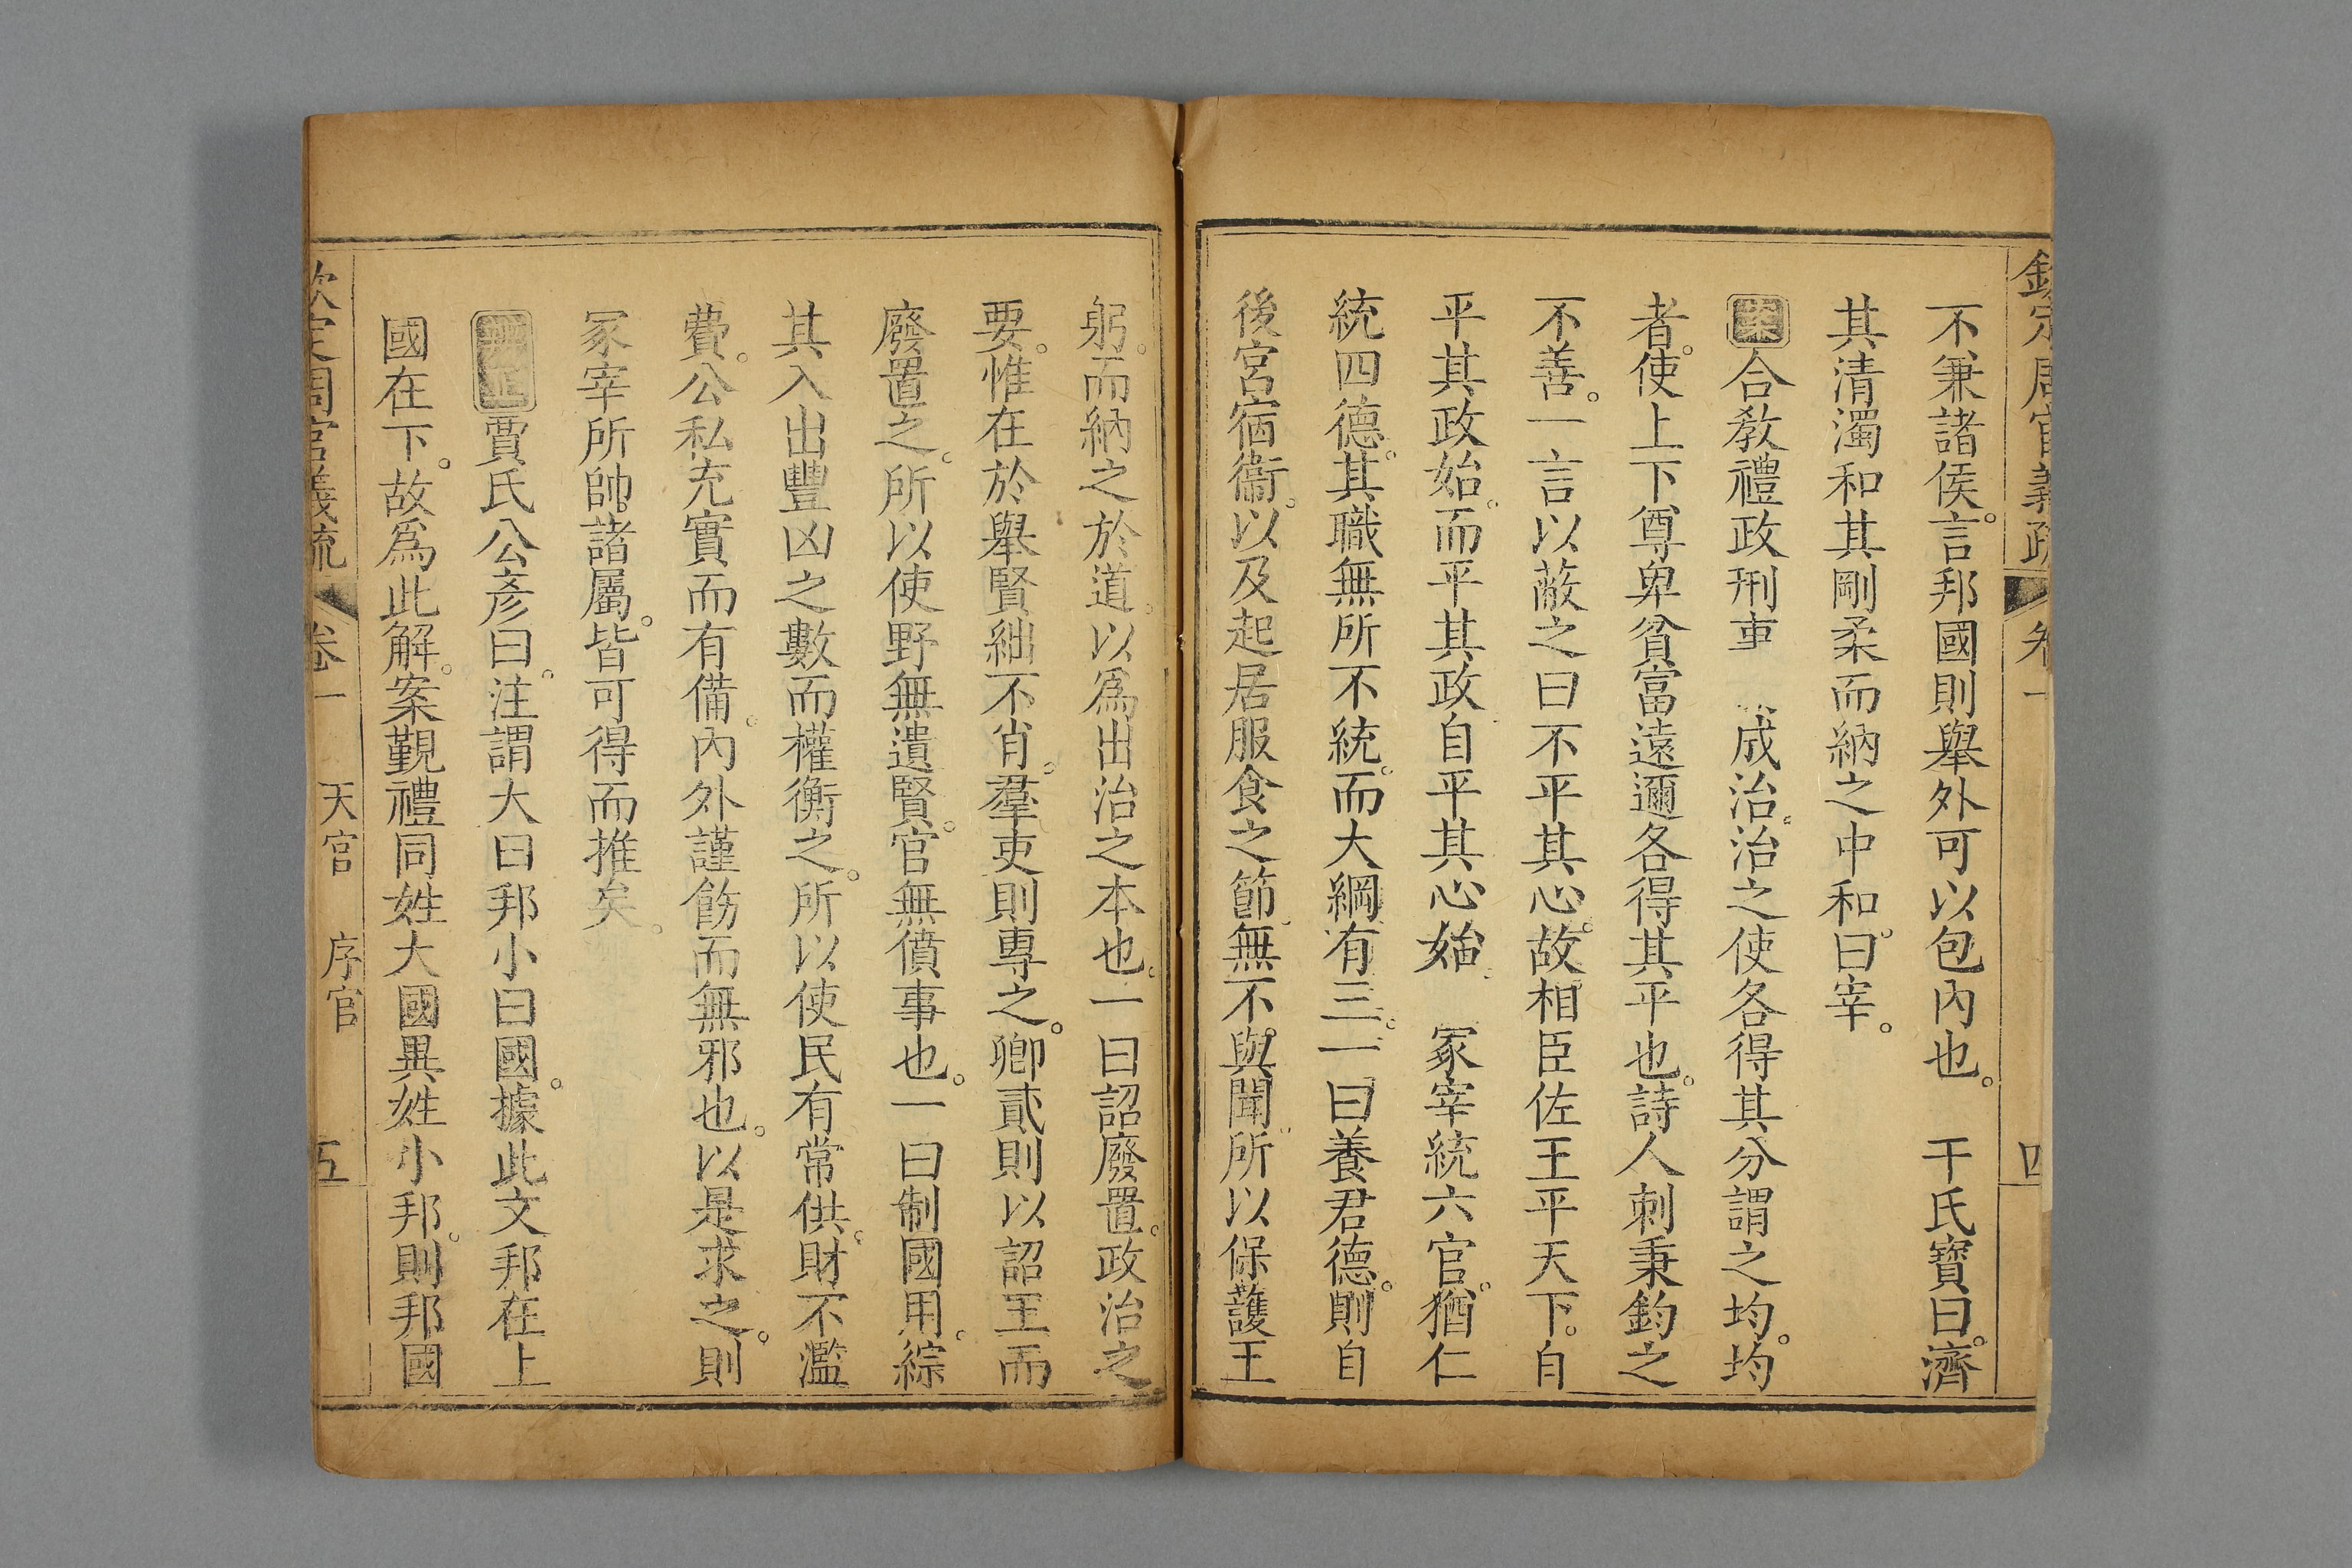 欽定周官義疏 卷一 四
不兼諸侯言。邦國則舉外可以包內也。 干氏寶曰。濟
其清濁和其剛柔而納之中和。曰宰。
案合教禮政刑事 成治。治之使各得其分謂之均。均
者。使上下尊卑貧富遠邇各得其平也。詩人刺秉鈞之
不善。一言以蔽之曰不平其心。故相臣佐王平天下。自
平其政始。而平其政自平其心始。 冢宰統六官。猶仁
統四德。其職無所不統。而大綱有三。一曰養君德。則自
後宮宿衞。以及起居服食之節。無不與聞。所以保護王
躬。而納之於道。以爲出治之本也。一曰詔廢置。政治之
要。惟在於舉賢絀不肖。羣吏則專之。卿貳則以詔王而
廢置之。所以使野無遺賢。官無僨事也。一曰制國用。綜
其入出豐凶之數而權衡之。所以使民有常供。財不濫
費。公私充實而有備。內外謹飭而無邪也。以是求之。則
冢宰所帥諸屬。皆可得而推矣。
賈氏公彥曰。注謂大曰邦小曰國。據此文邦在上
國在下。故爲此解。案覲禮同姓大國異姓小邦。則邦國
欽定周官義疏 卷一 天官 序官 五